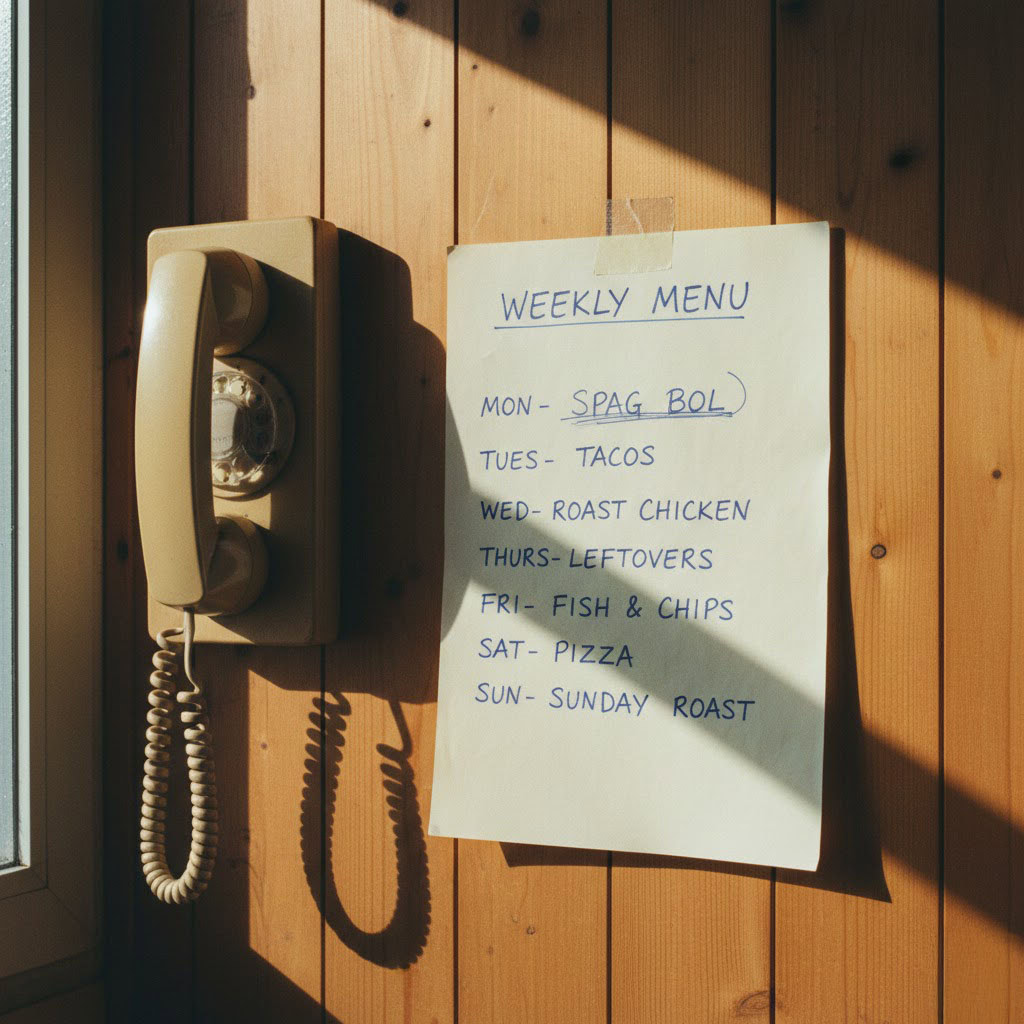 WEEKLY MENU
MON - SPAG BOL
TUES - TACOS
WED - ROAST CHICKEN
THURS - LEFTOVERS
FRI - FISH & CHIPS
SAT - PIZZA
SUN - SUNDAY ROAST